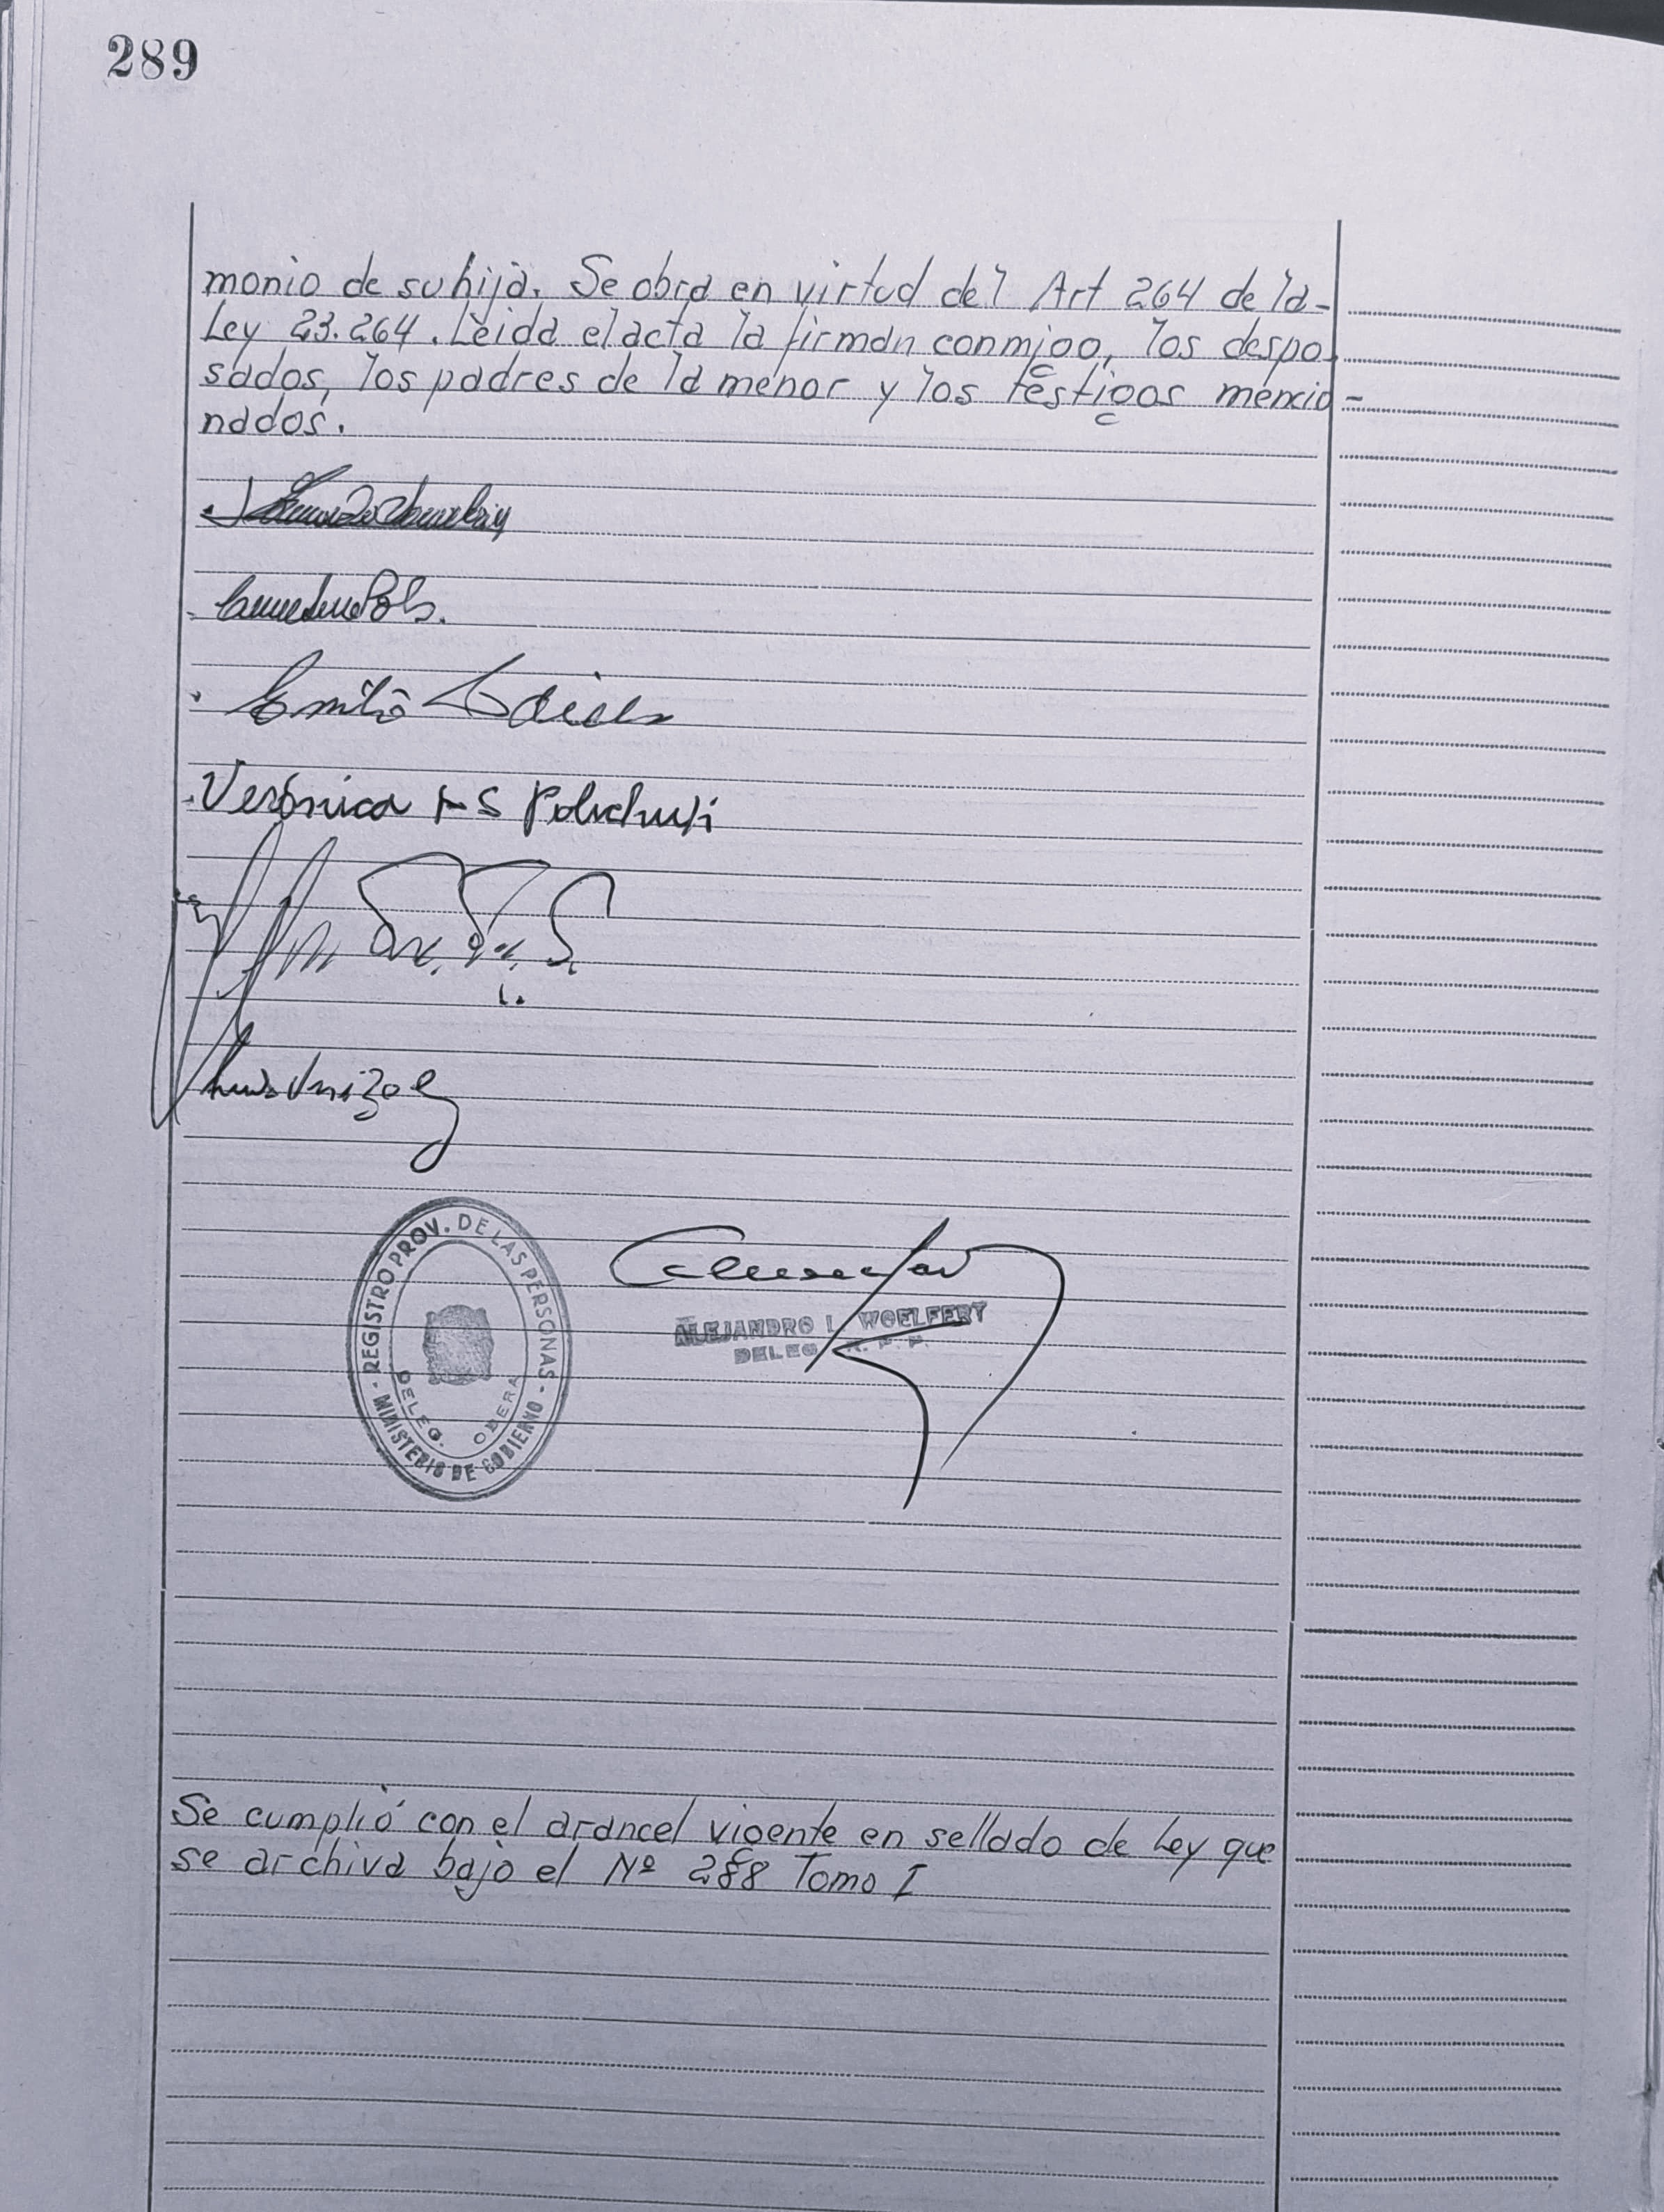 289
monio de su hija. Se obra en virtud del Art 264 de la-
Ley 23.264. Leida el acta la firman conmigo, los despo
sados, los padres de la menor y los testigos mencio-
nados.
Emilio
Verónica
REGISTRO PROV. DE LAS PERSONAS - MINISTERIO DE GOBIERNO -
DELEG. OBERA
ALEJANDRO I. WOELFERT
DELEG
Se cumplió con el arancel vigente en sellado de Ley que
se archiva bajo el Nº 288 Tomo I